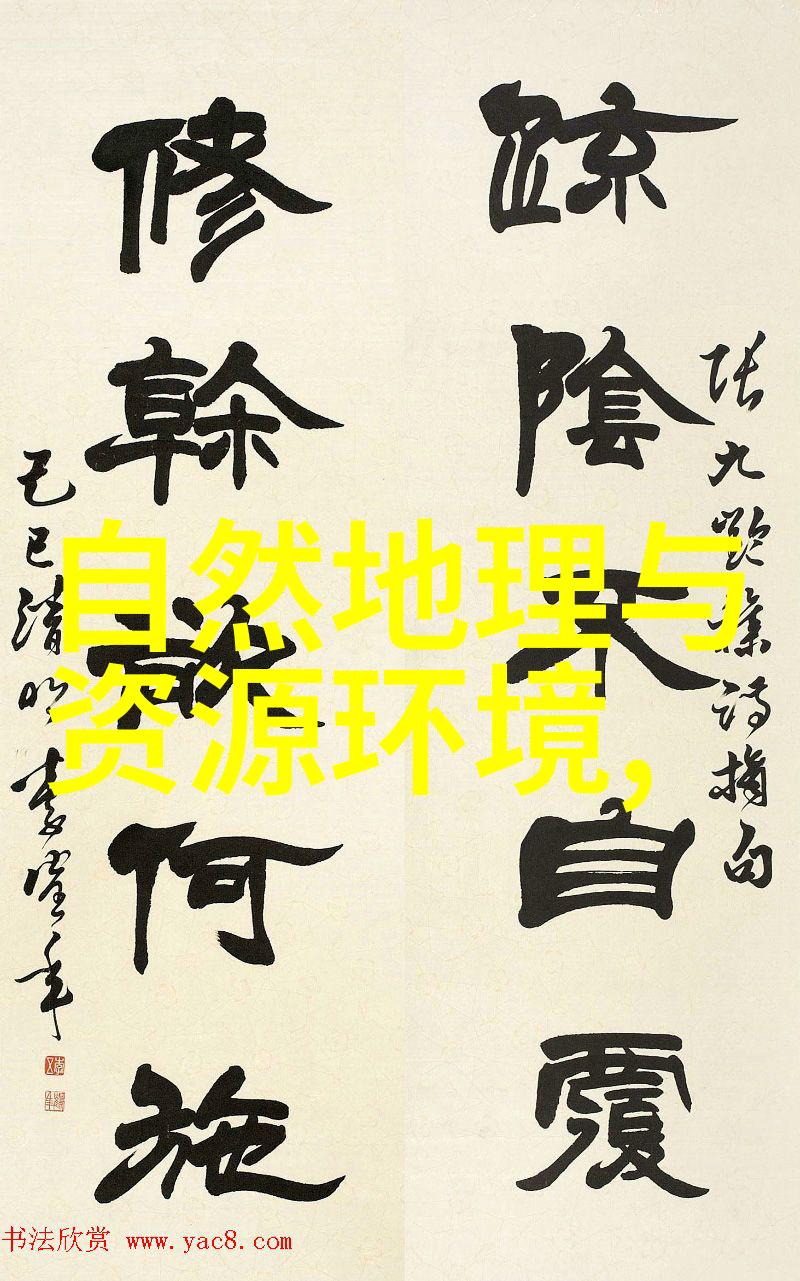 張九齡集詩摘句
踈陰不自覆
修幹何施
己巳清明
自然地理与
资源环境,
书法欣赏 www.yac8.com